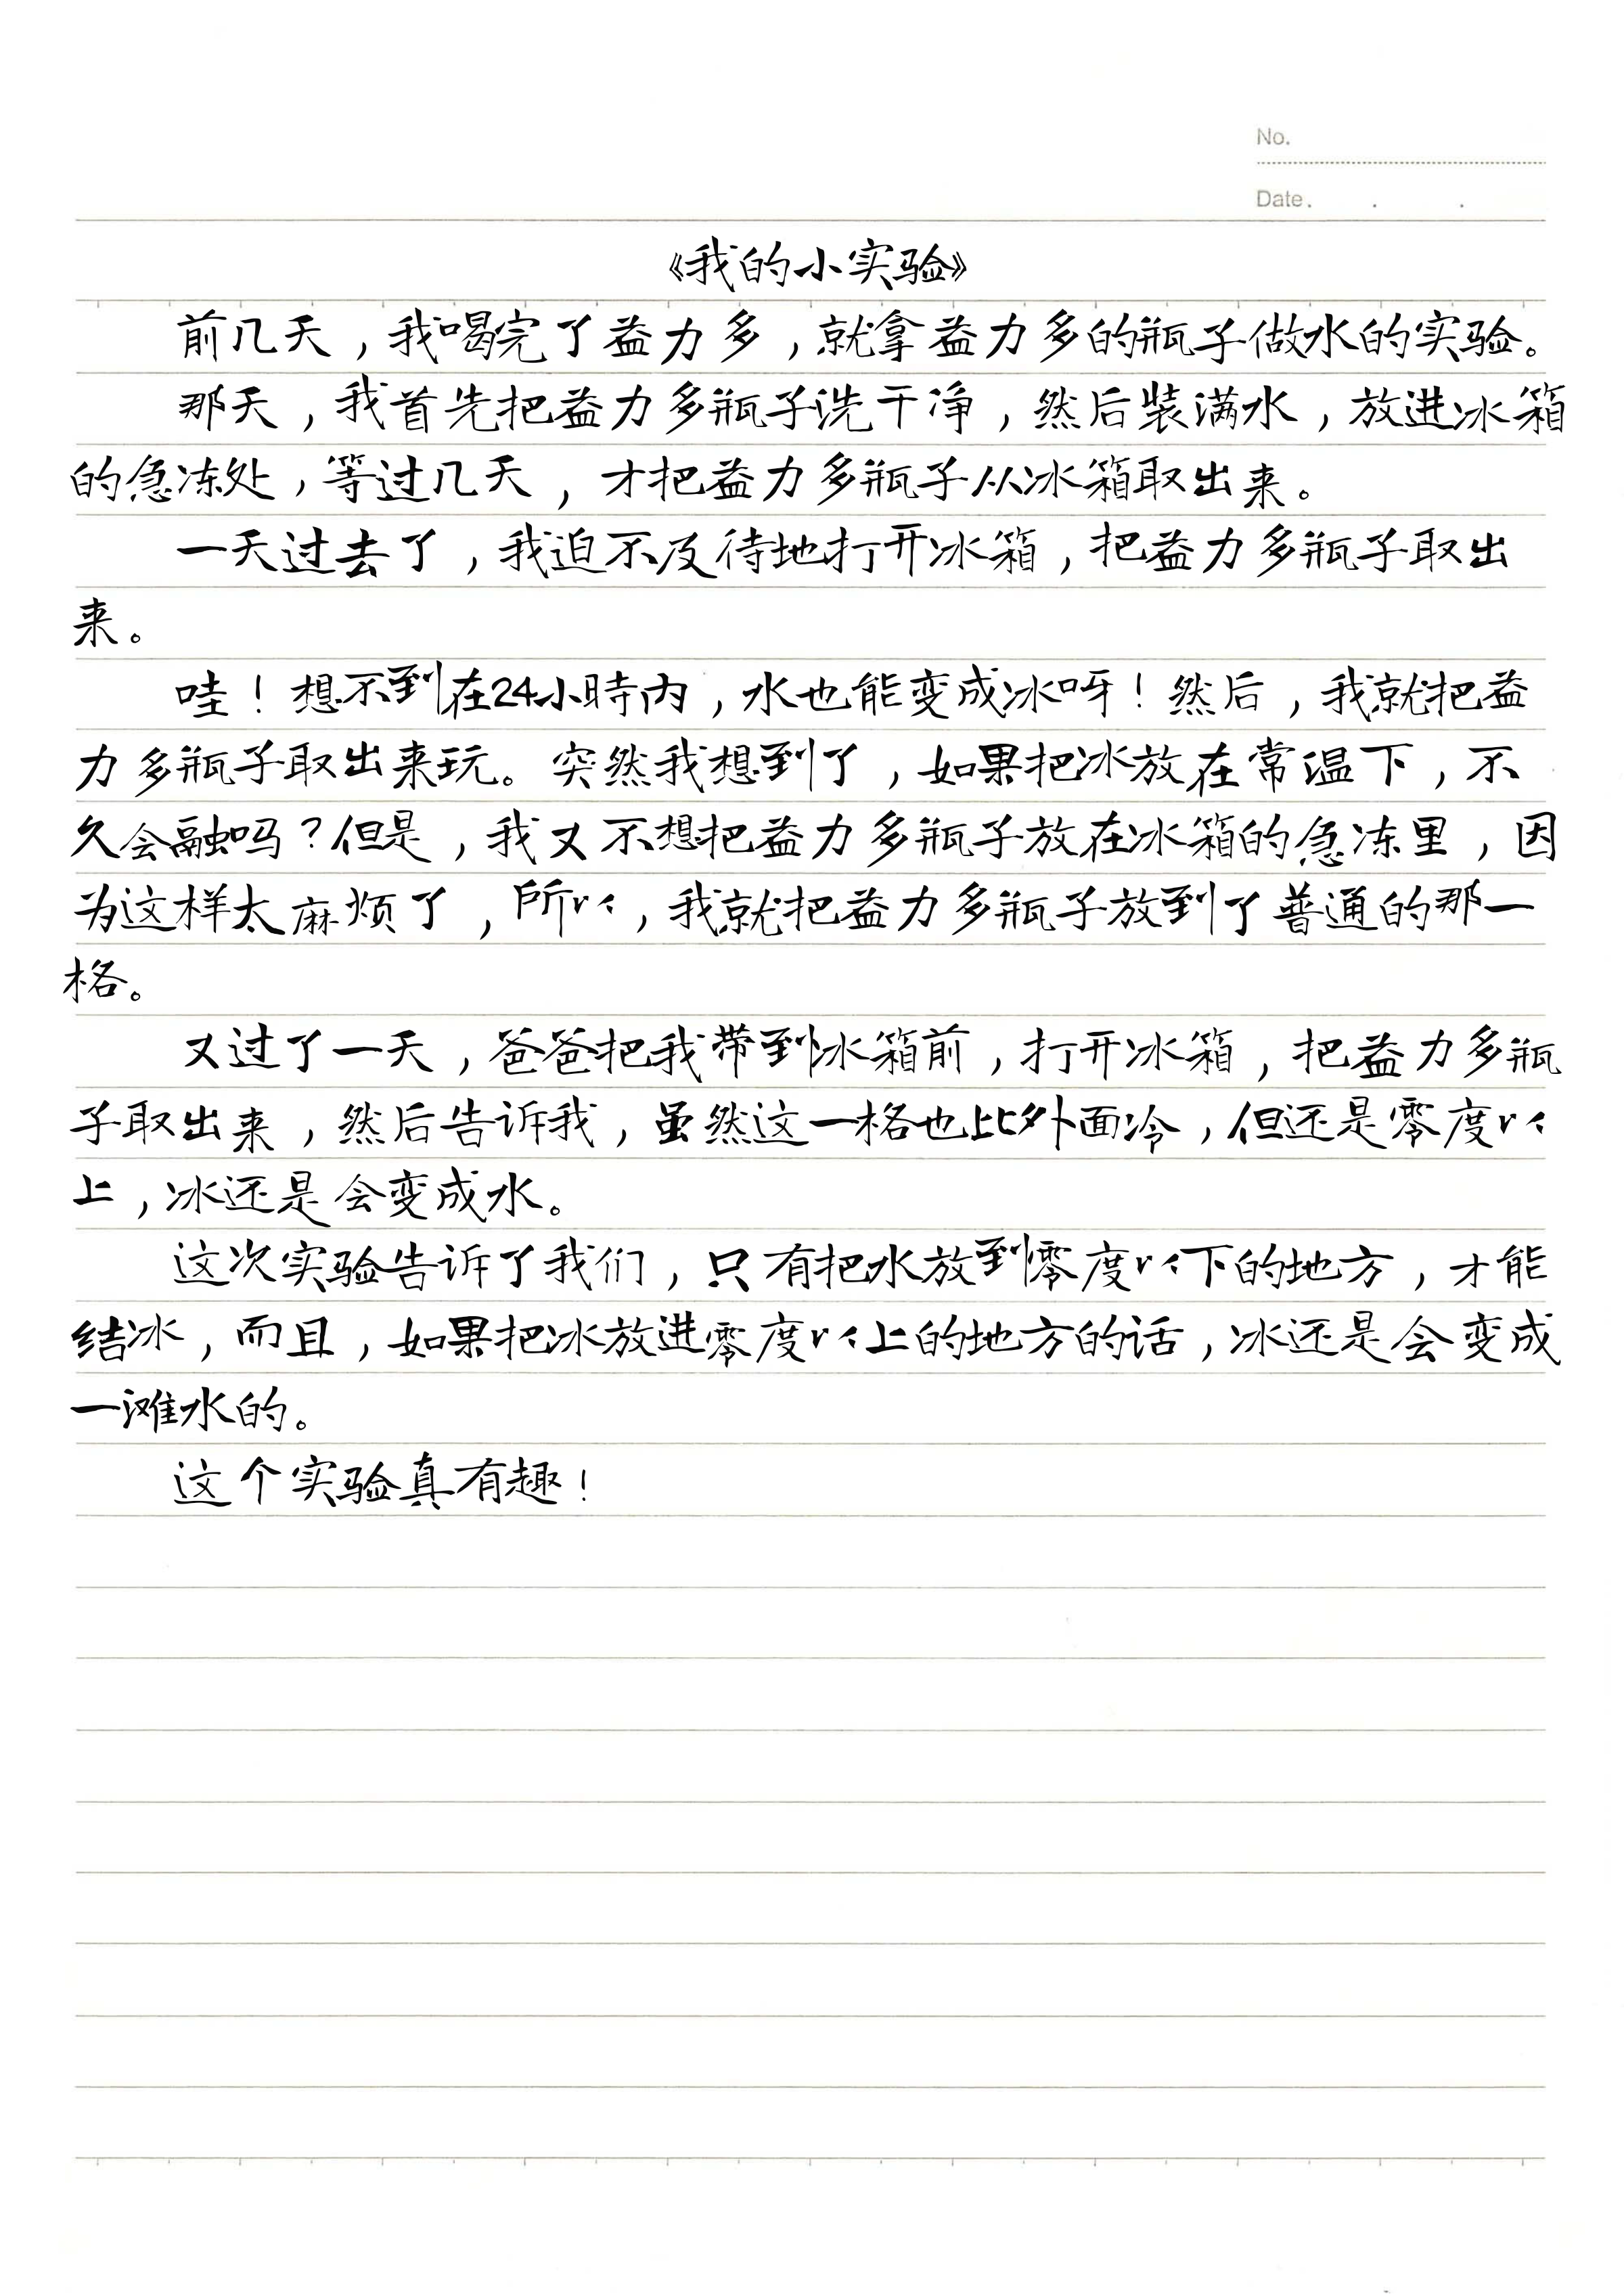 No.
Date.
《我的小实验》
前几天，我喝完了益力多，就拿益力多的瓶子做水的实验。
那天，我首先把益力多瓶子洗干净，然后装满水，放进冰箱
的急冻处，等过几天，才把益力多瓶子从冰箱取出来。
一天过去了，我迫不及待地打开冰箱，把益力多瓶子取出
来。
哇！想不到在24小時内，水也能变成冰呀！然后，我就把益
力多瓶子取出来玩。突然我想到了，如果把冰放在常温下，不
久会融吗？但是，我又不想把益力多瓶子放在冰箱的急冻里，因
为这样太麻烦了，所以，我就把益力多瓶子放到了普通的那一
格。
又过了一天，爸爸把我带到冰箱前，打开冰箱，把益力多瓶
子取出来，然后告诉我，虽然这一格也比外面冷，但还是零度以
上，冰还是会变成水。
这次实验告诉了我们，只有把水放到零度以下的地方，才能
结冰，而且，如果把冰放进零度以上的地方的话，冰还是会变成
一滩水的。
这个实验真有趣！